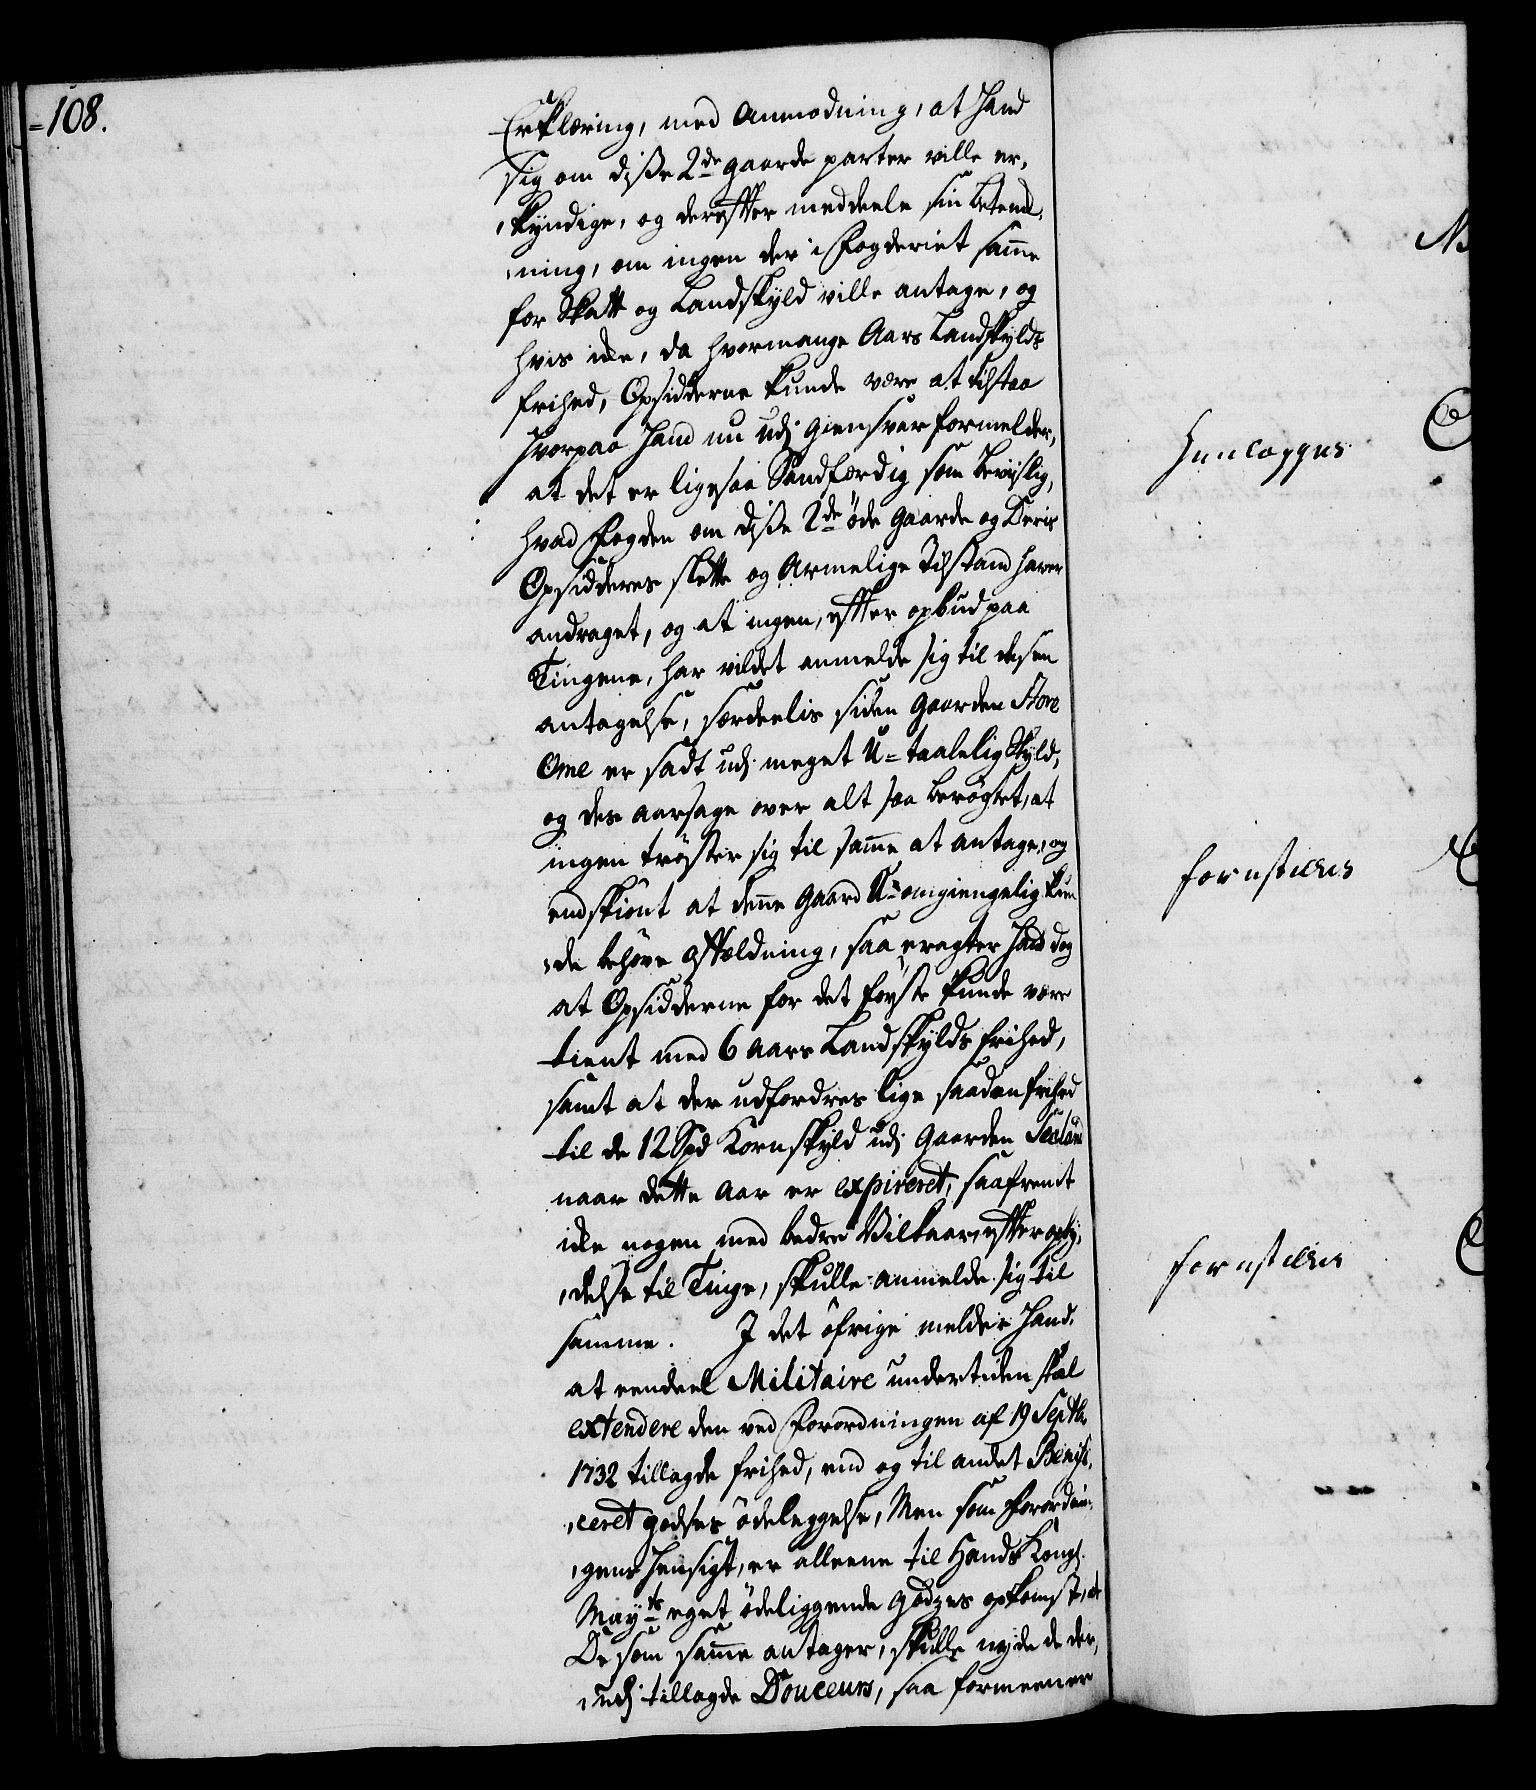 =108.
Erklæring, med Anmodning, at Hand
sig om disse 2de gaarde parter ville er¬
kyndige, og derefter meddeele sin betenk¬
ning, om ingen der i Fogderiet samme
for Skatt og Landskyld ville antage, og
hvis ikke, da hvormange Aars Landskylds
frihed, Opsidderne kunde være at tilstaa
Hvorpaa Hand nu udj giensvar formelder,
at det er ligesaa Sandfærdig som beviislig,
hvad Fogden om disse 2de öde gaarde og Deris
Opsidderes slette og Armelige Tilstand haver
andraget, og at ingen, efter opbud paa
Tingene, har vildet anmelde sig til desen
antagelse, særdeelis siden gaarden Store
Ome er sadt udj meget U=taalelig Skyld,
og des aarsage over alt saa berögtet, at
ingen tröster sig til samme at antage, og
endskiönt at denne gaard U=omgiengelig kun¬
de behöve affældning, saa eragter Hand dog
at Opsidderne for det förste kunde være
tient med 6 Aars Landskylds frihed,
samt at der udfordres lige saadan frihed
til de 12 Spd Kornskyld udj gaarden
naar dette Aar er expireret, saafremt
ikke nogen med bedre Vilkaar, efter opby¬
delse til Tinge, skulle anmelde sig til
samme. I det öfrige melder Hand,
at eendeel Militaire undertiden skal
extendere den ved Forordningen af 19 Septb.
1732 tillagde frihed, end og til andet Benifi¬
ceret godses ödeleggelse, Men som Forordnin¬
gens Hensigt, er alleene til Hands Kongl.
Mayts eget ödeliggende godzes opkomst, at
De som samme antager, skulle nyde de der¬
udj tillagde Douceurs, saa formeener
forestilles
forestilles